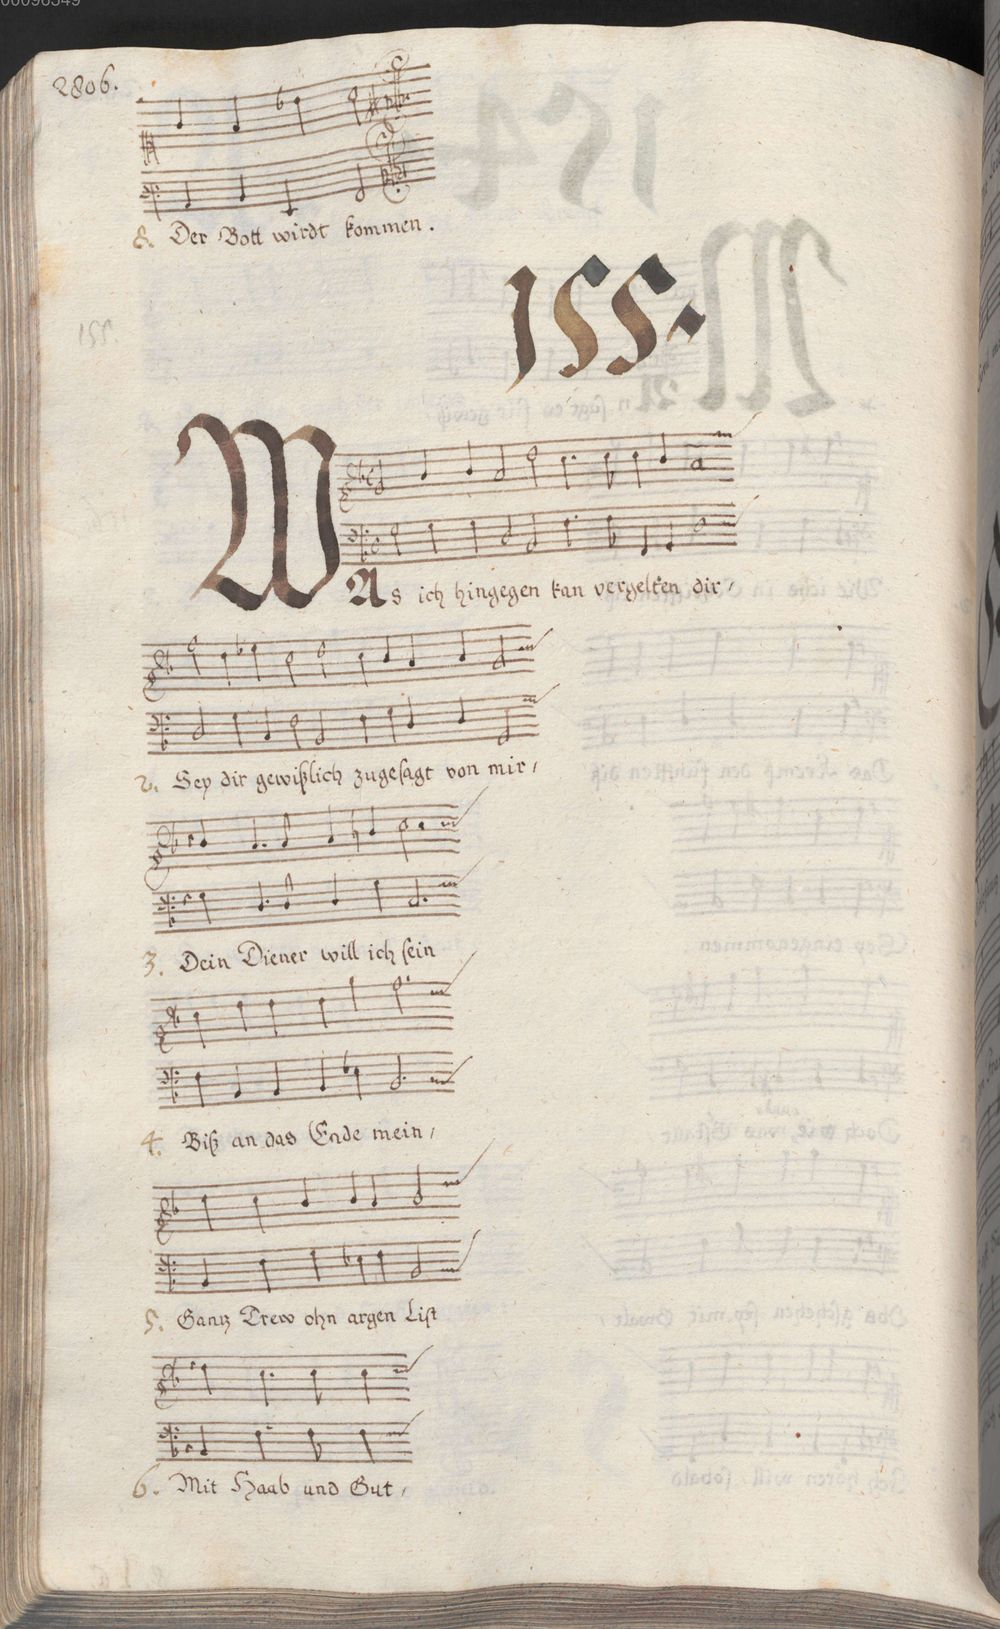 00096349
2806.
8. Der Bott wirdt kommen.
155.
155.
WAs ich hingegen kan vergelten dir,
2. Sey dir gewißlich zugesagt von mir,
3. Dein Diener will ich sein
4. Biß an das Ende mein,
5. Gantz Trew ohn argen List
6. Mit Haab und Gut,